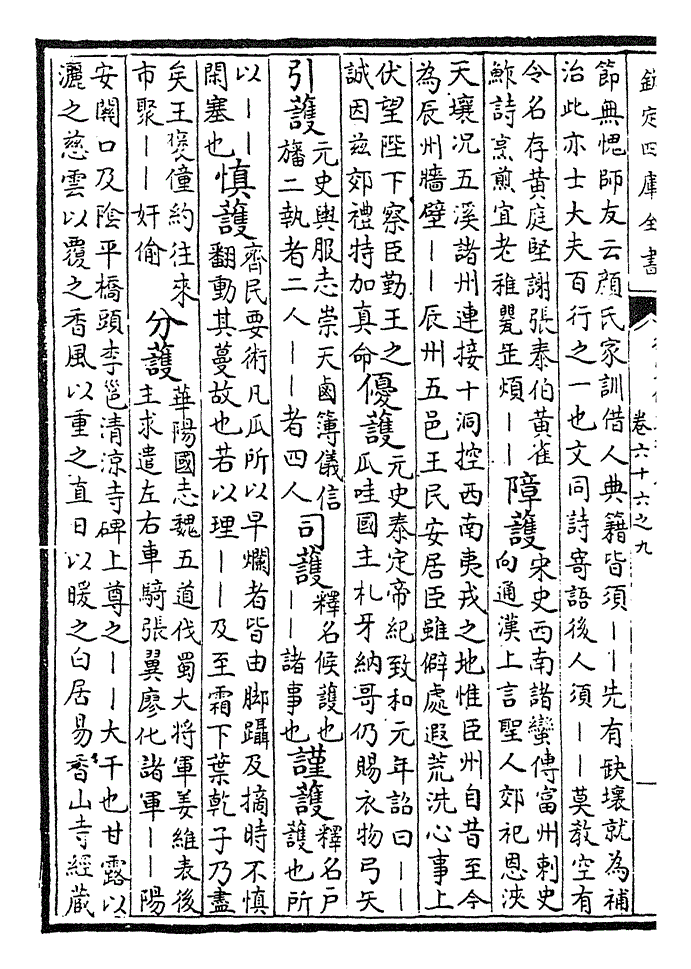 欽定四庫全書
卷六十六之九
節無愧師友云顔氏家訓借人典籍皆須——先有缺壞就為補
治此亦士大夫百行之一也文同詩寄語後人須——莫教空有
令名存黄庭堅謝張泰伯黄雀
鮓詩烹煎宜老稚甖缶煩——
障護
宋史西南諸蠻傳富州刺史
向通漢上言聖人郊祀恩浹
天壤况五溪諸州連接十洞控西南夷戎之地惟臣州自昔至今
為辰州牆壁——辰州五邑王民安居臣雖僻處遐荒洗心事上
伏望陛下察臣勤王之
誠因兹郊禮特加真命
優護
元史泰定帝紀致和元年詔曰——
爪哇國主札牙納哥仍賜衣物弓矢
引護
元史輿服志崇天鹵簿儀信
旛二執者二人——者四人
司護
釋名候護也
——諸事也
謹護
釋名戸
護也所
以——
閑塞也
慎護
齊民要術凡瓜所以早爛者皆由脚躡及摘時不慎
翻動其蔓故也若以理——及至霜下葉乾子乃盡
矣王褒僮約往來
市聚——奸偷
分護
華陽國志魏五道伐蜀大将軍姜維表後
主求遣左右車騎張翼廖化諸軍——陽
安闗口及陰平橋頭李邕清涼寺碑上尊之——大千也甘露以
灑之慈雲以覆之香風以重之直日以暖之白居易香山寺經藏